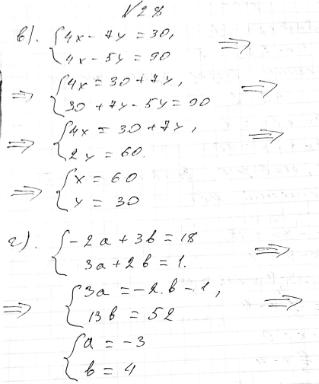 №28
в). { 4x - 7y = 30,
4x - 5y = 90 ⇒
⇒ { 4x = 30 + 7y,
30 + 7y - 5y = 90 ⇒
⇒ { 4x = 30 + 7y,
2y = 60. ⇒
⇒ { x = 60
y = 30
г). { -2a + 3b = 18
3a + 2b = 1. ⇒
⇒ { 3a = -2b - 1,
13b = 52 ⇒
{ a = -3
b = 4